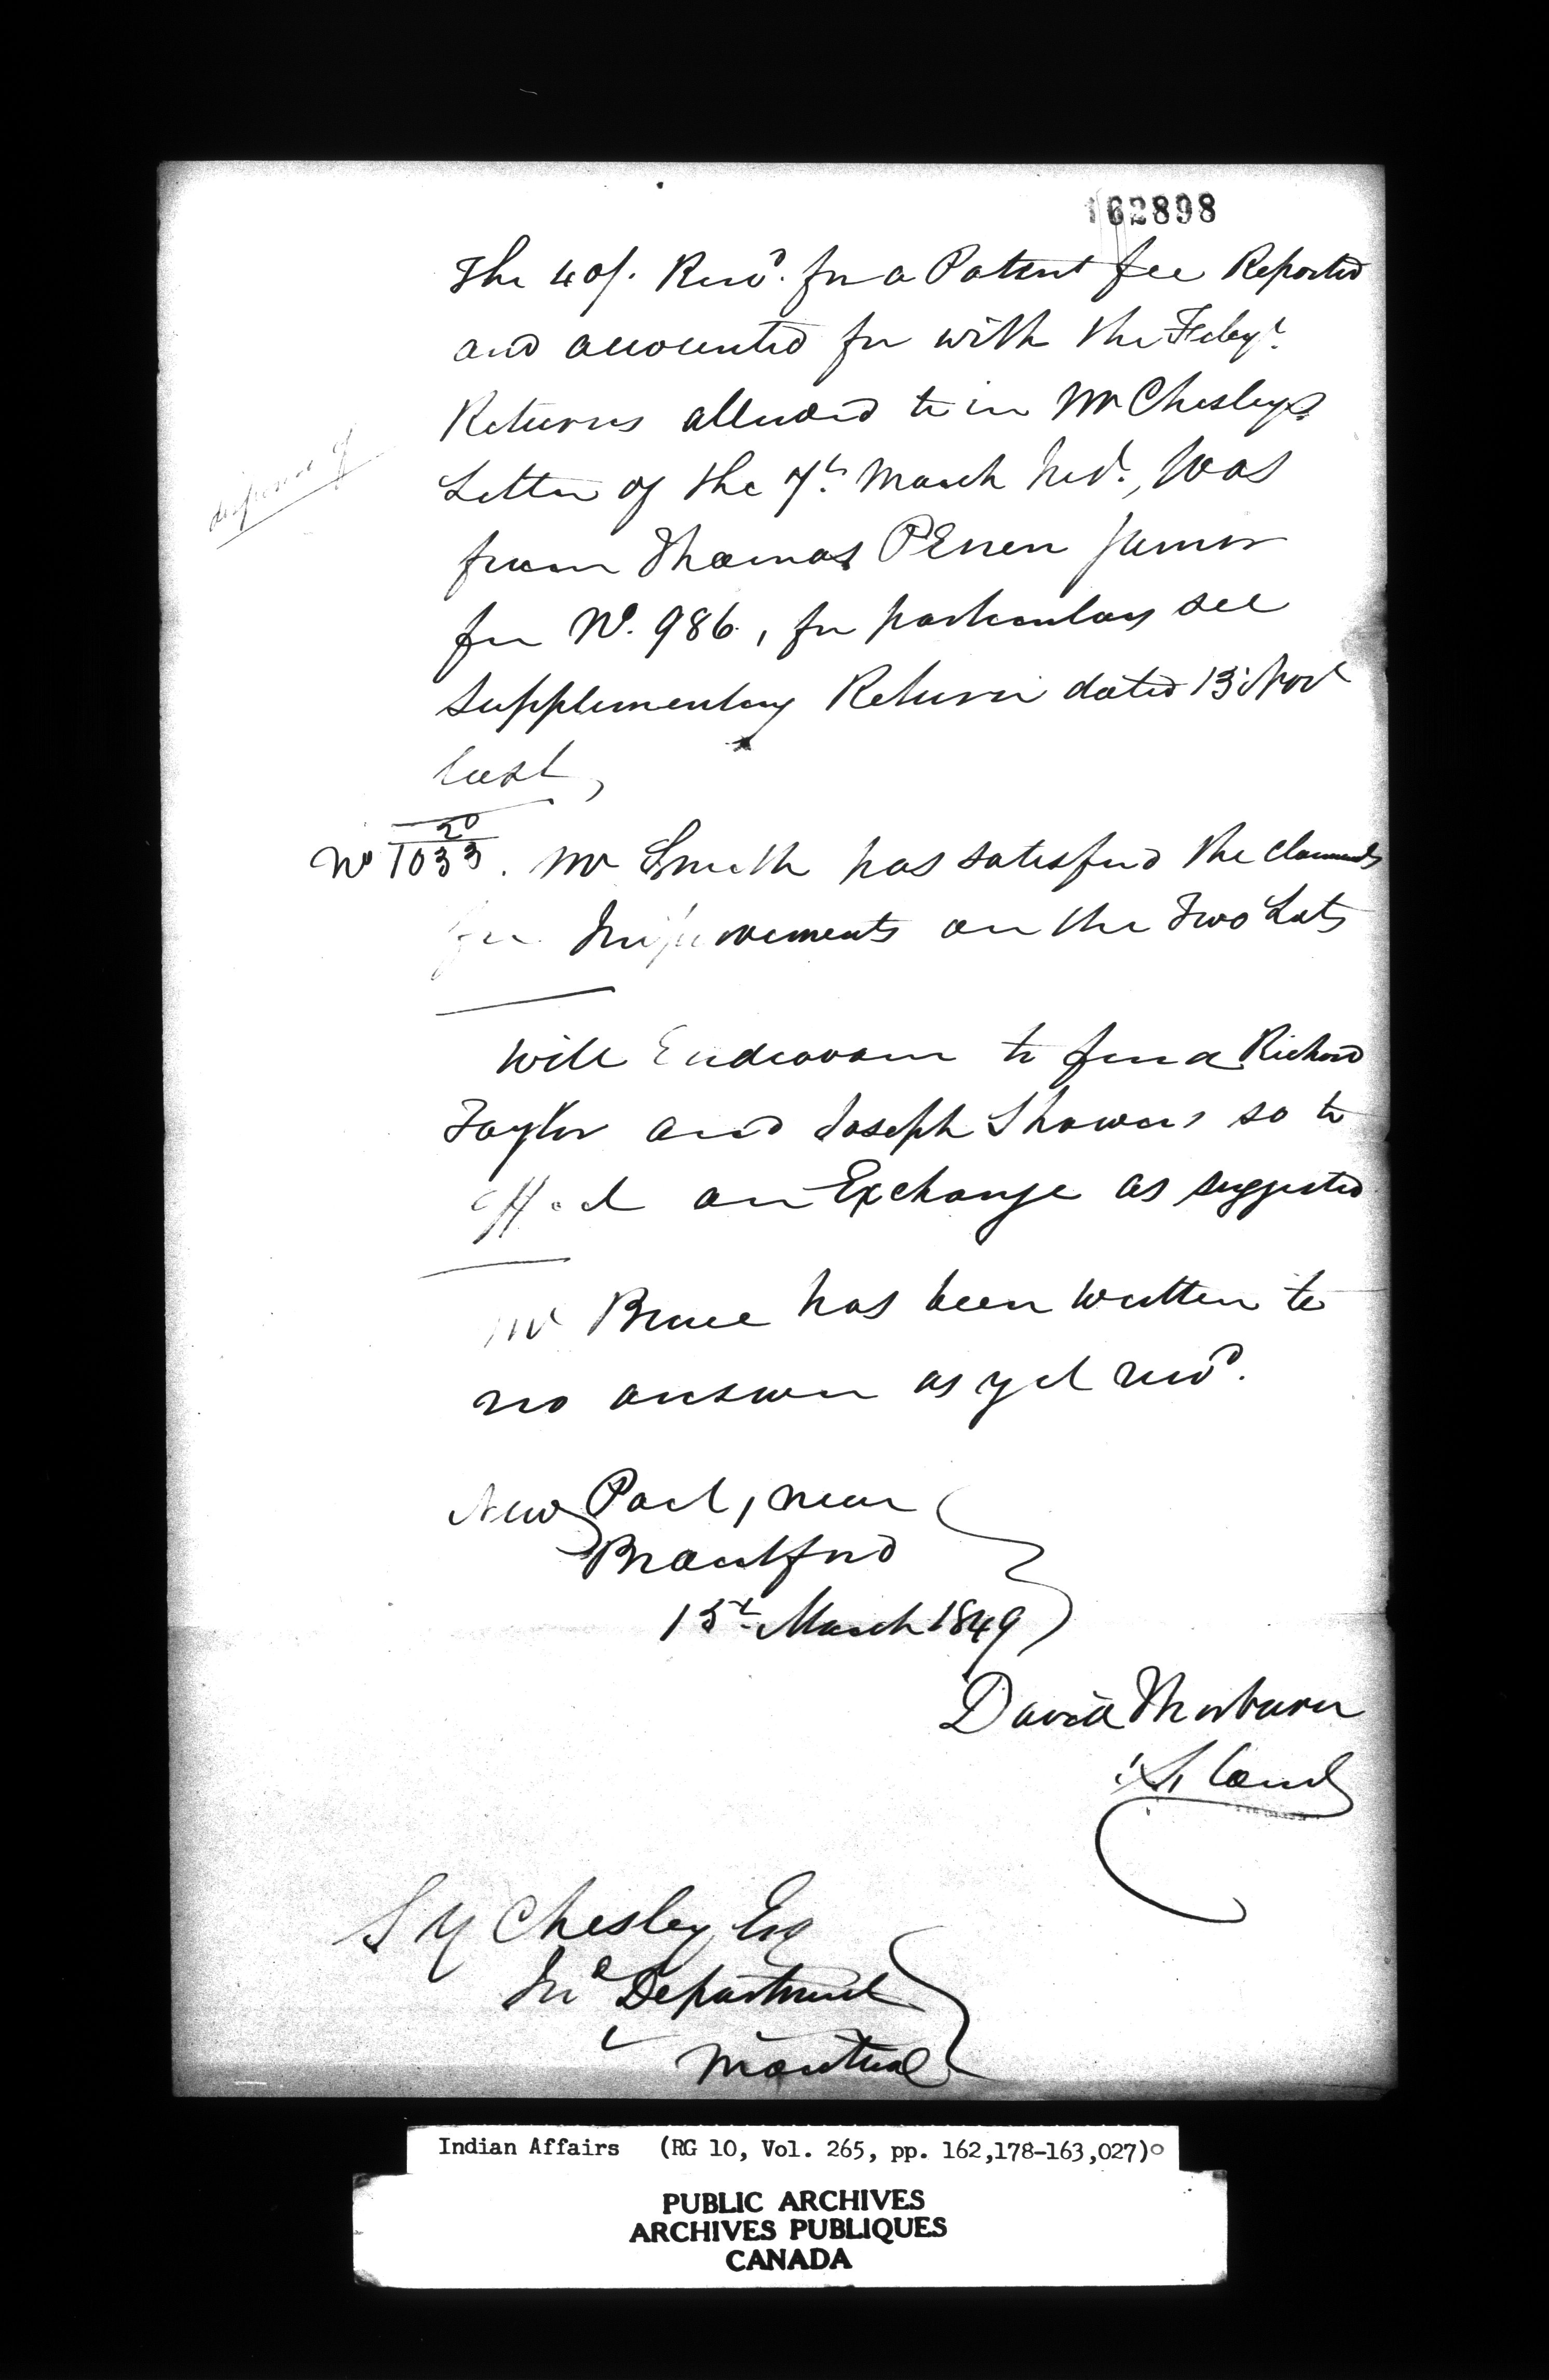 162898
The 40/. Recd. for a Patent fee Reported
and accounted for with the Feby.
Returns alluded to in Mr Chesleys
Letter of the 7th March , was
from Thomas Perren Junior
for No. 986, for particulars see
Supplementary Return dated 13 Novr
last,
disposed of
2d
No 1033. Mr Smith has satisfied the claimants
for Improvements on the Two Lots
Will Endeavour to find Richard
Taylor and Joseph Showers so to
effect an Exchange as suggested
Mr Bruce has been written to
no answer as yet recd.
New Port, near
Brantford
15th March 1849
David Thorburn
S Y Chesley Esq
Ind Department
Montreal
Indian Affairs (RG 10, Vol. 265, pp. 162,178-163,027)
PUBLIC ARCHIVES
ARCHIVES PUBLIQUES
CANADA